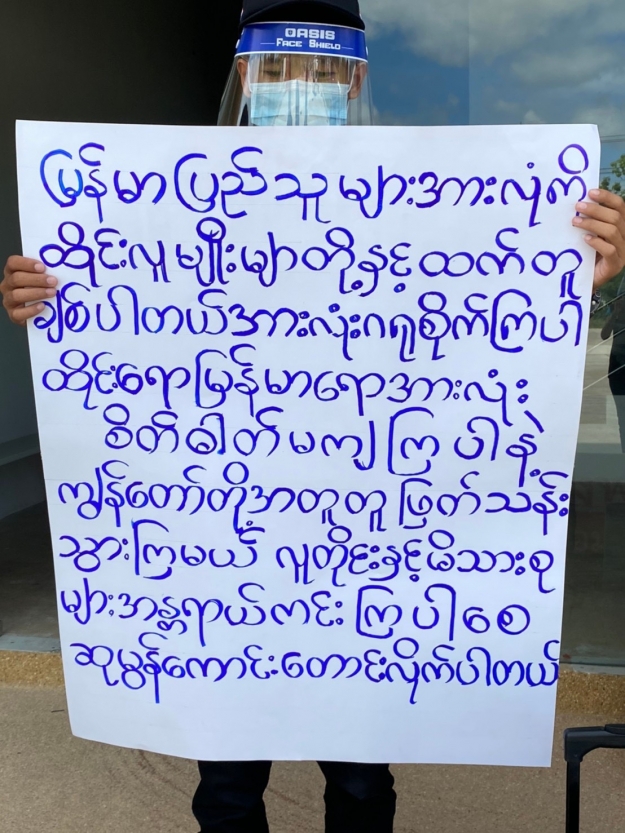 OASIS
FACE SHIELD
မြန်မာပြည်သူများအားလုံကို
ထိုင်းလူမျိုးမျာတို့နှင့်ထက်တူ
ချစ်ပါတယ်အားလုံးဂရုစိုက်ကြပါ
ထိုင်းရောမြန်မာရောအားလုံး
စိတ်ဓါတ်မကျကြပါနဲ့
ကျွန်တော်တို့အတူတူဖြတ်သန်း
သွားကြမယ် လူတိုင်းနှင့်မိသားစု
များအန္တရာယ်ကင်းကြပါစေ
ဆုမွန်ကောင်းတောင်းလိုက်ပါတယ်